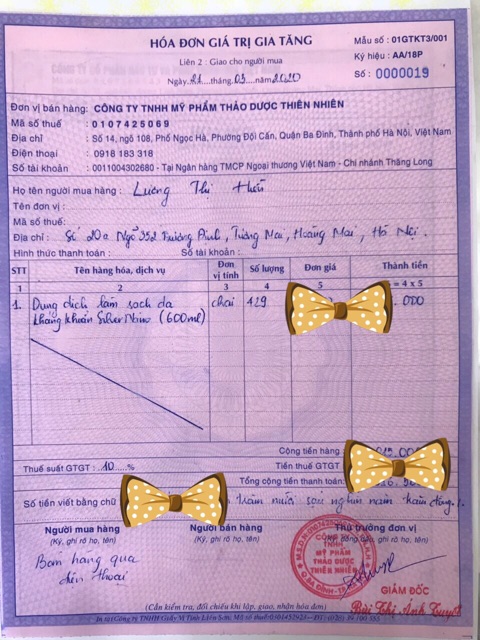 HÓA ĐƠN GIÁ TRỊ GIA TĂNG
Mẫu số : 01GTKT3/001
Liên 2 : Giao cho người mua
Ký hiệu : AA/18P
Ngày 21 tháng 03 năm 2020
Số : 0000019
Đơn vị bán hàng: CÔNG TY TNHH MỸ PHẨM THẢO DƯỢC THIÊN NHIÊN
Mã số thuế : 0107425069
Địa chỉ : Số 14, ngõ 108, Phố Ngọc Hà, Phường Đội Cấn, Quận Ba Đình, Thành phố Hà Nội, Việt Nam
Điện thoại : 0918 183 318
Số tài khoản : 0011004302680 - Tại Ngân hàng TMCP Ngoại thương Việt Nam - Chi nhánh Thăng Long
Họ tên người mua hàng : Lương Thị
Tên đơn vị :
Mã số thuế:
Địa chỉ : Số 20a Ngõ 352 Trương Định, Tương Mai, Hoàng Mai, Hà Nội.
Hình thức thanh toán : Số tài khoản :
STT Tên hàng hóa, dịch vụ Đơn vị tính Số lượng Đơn giá Thành tiền
1 2 3 4 5 = 4 x 5
1. Dung dịch làm sạch da chai 429 .000
kháng khuẩn Silver Nano (600ml)
Cộng tiền hàng
Thuế suất GTGT : 10 % Tiền thuế GTGT
Tổng cộng tiền thanh toán
Số tiền viết bằng chữ trăm mươi sáu nghìn năm trăm đồng
Người mua hàng Người bán hàng Thủ trưởng đơn vị
(Ký, ghi rõ họ, tên) (Ký, ghi rõ họ, tên)
Bán hàng qua
điện thoại
CÔNG TY
TNHH
MỸ PHẨM
THẢO DƯỢC
THIÊN NHIÊN
GIÁM ĐỐC
Bùi Thị Ánh Tuyết
(Cần kiểm tra, đối chiếu khi lập, giao, nhận hóa đơn)